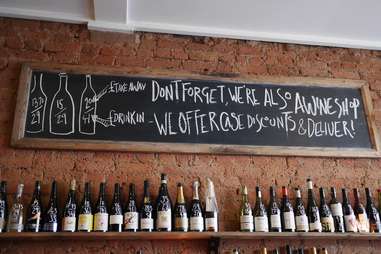 £TAKE AWAY
£DRINK IN
DON'T FORGET, WE'RE ALSO A WINE SHOP
- WE OFFER CASE DISCOUNTS & DELIVER!
15
29